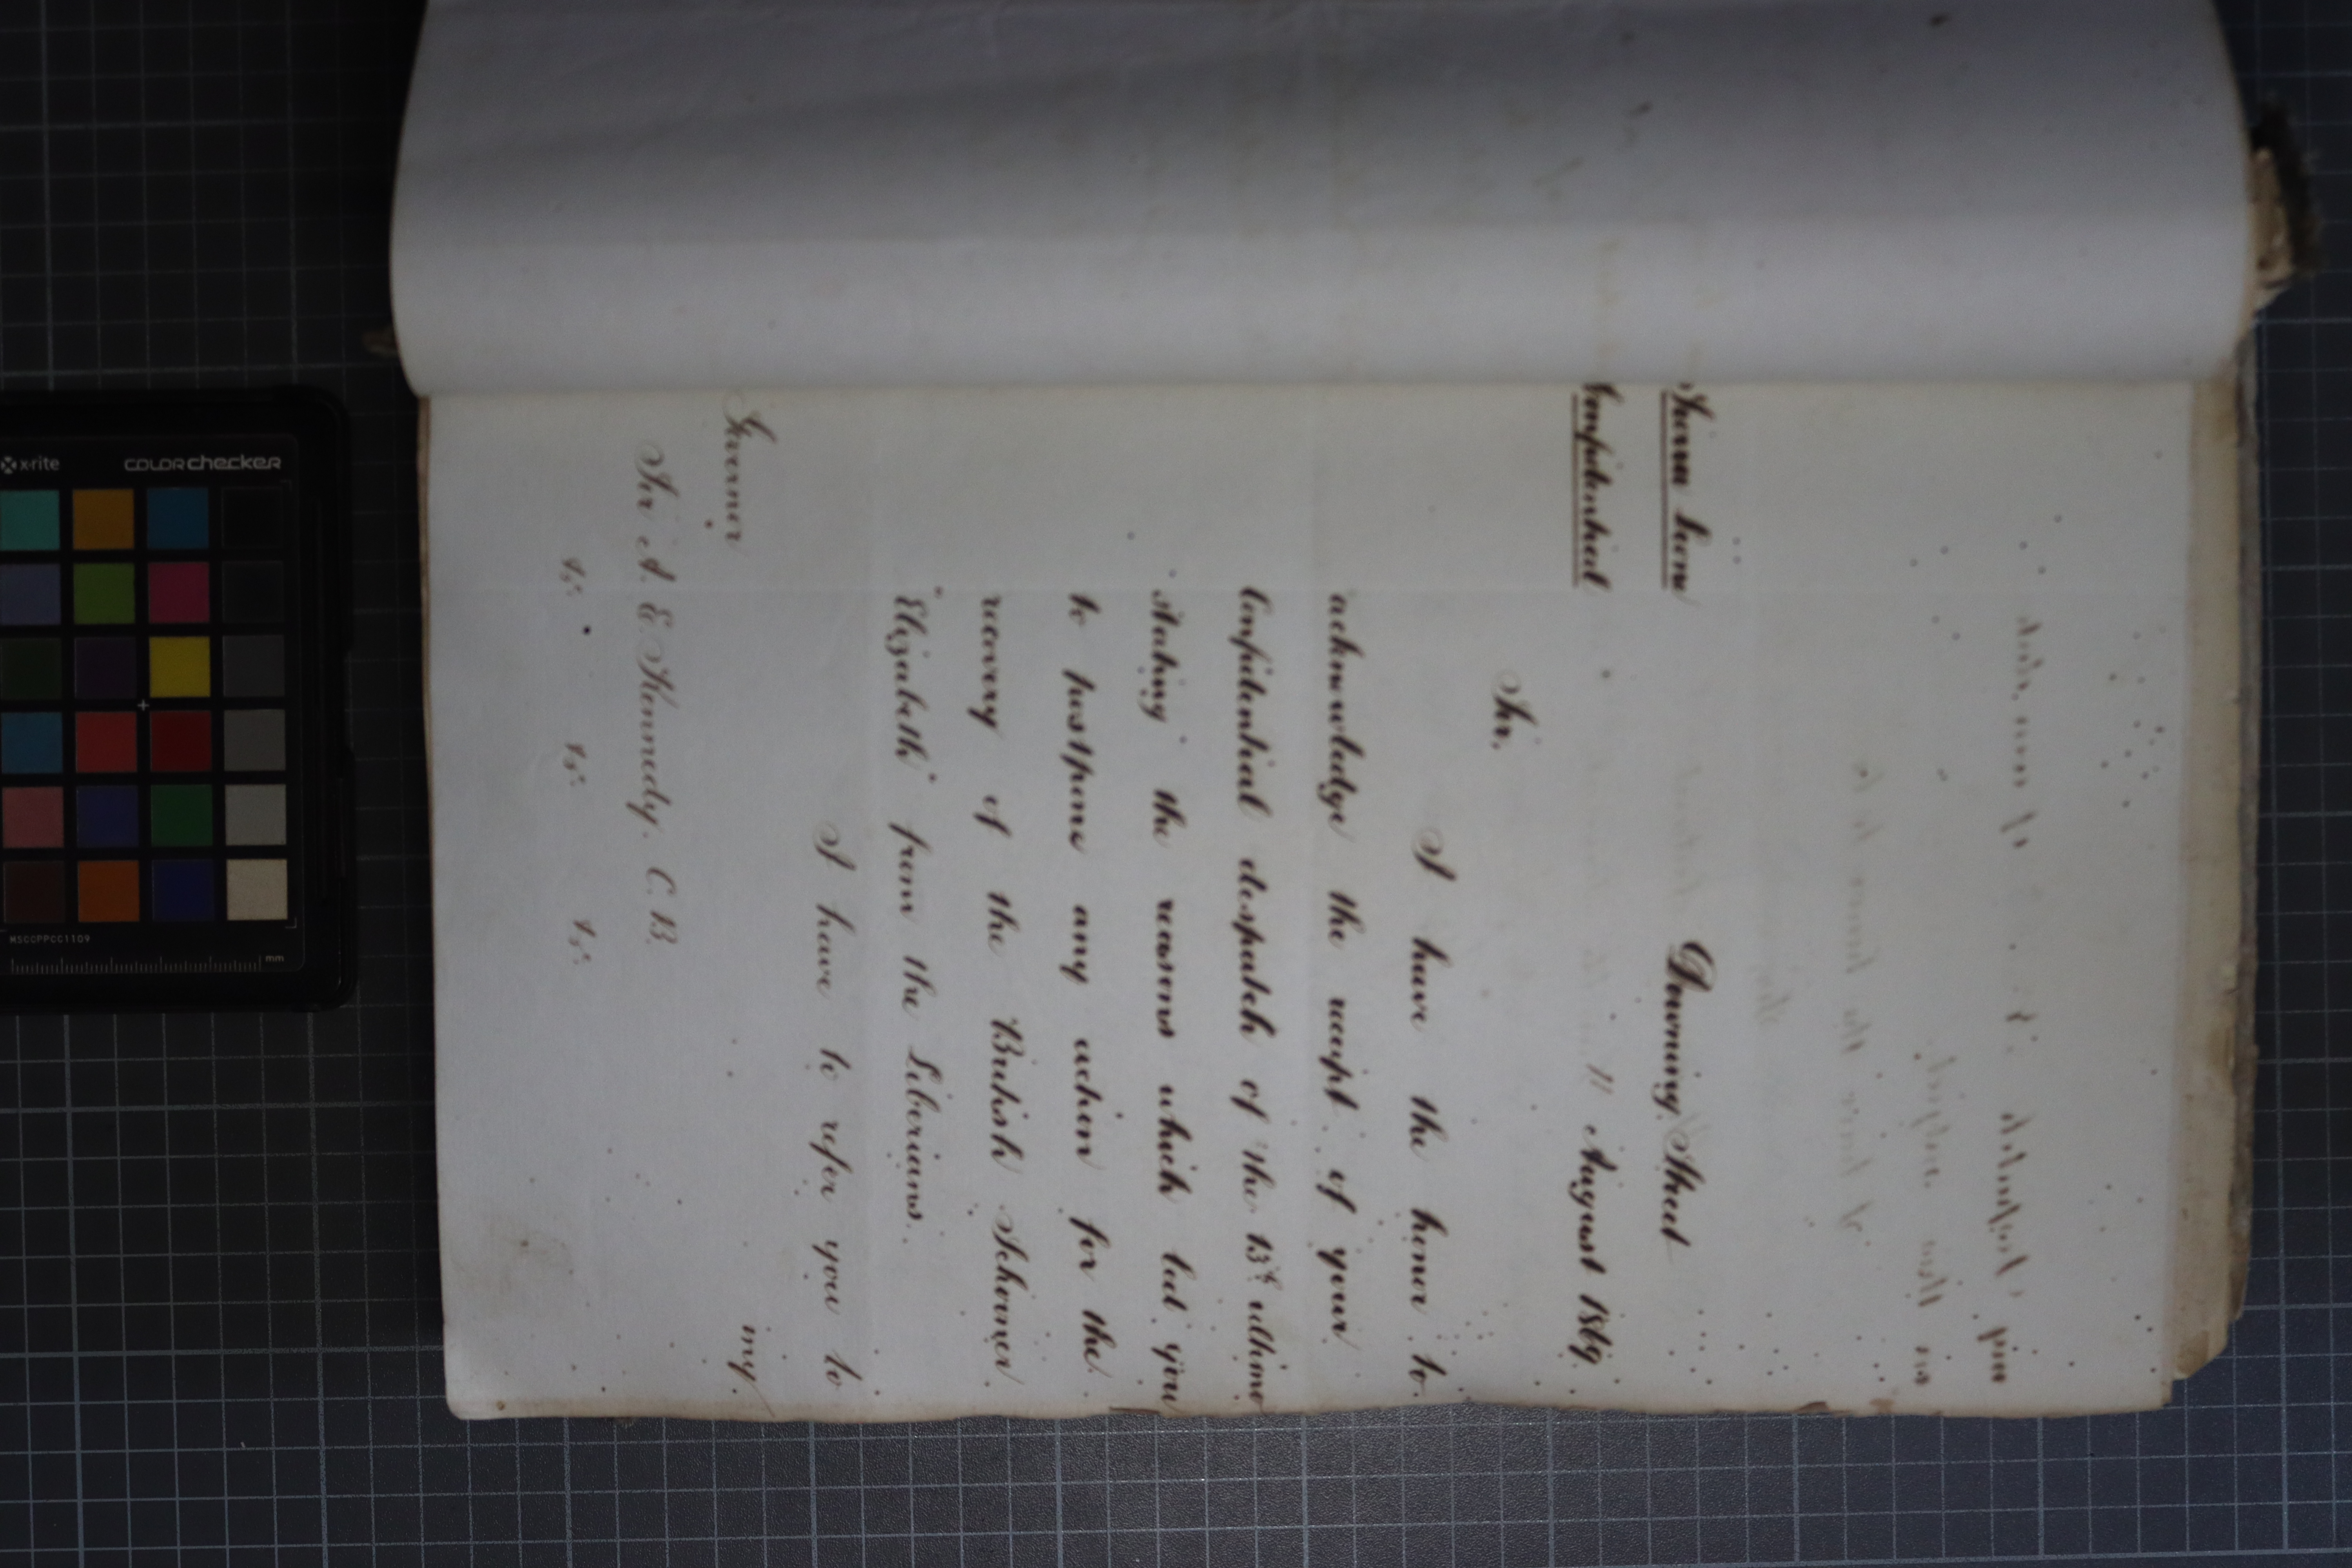 Sierra Leone
Confidential
Downing Street
11 August 1869
Sir,
I have the honor to
acknowledge the receipt of your
Confidential despatch of the 13th ultimo
stating the reasons which led you
to postpone any action for the
recovery of the British Schooner
"Elizabeth" from the Liberians.
I have to refer you to
my
Governor
Sir A. E. Kennedy, C.B.
&c. &c. &c.
x-rite COLORchecker
MSCCPPCC1109
mm